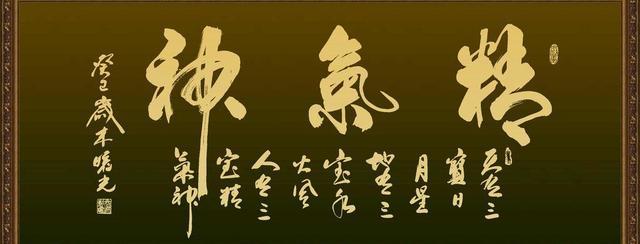 精氣神
天有三
寶日
月星
地有三
宝水
火風
人有三
宝精
氣神
癸巳歲末